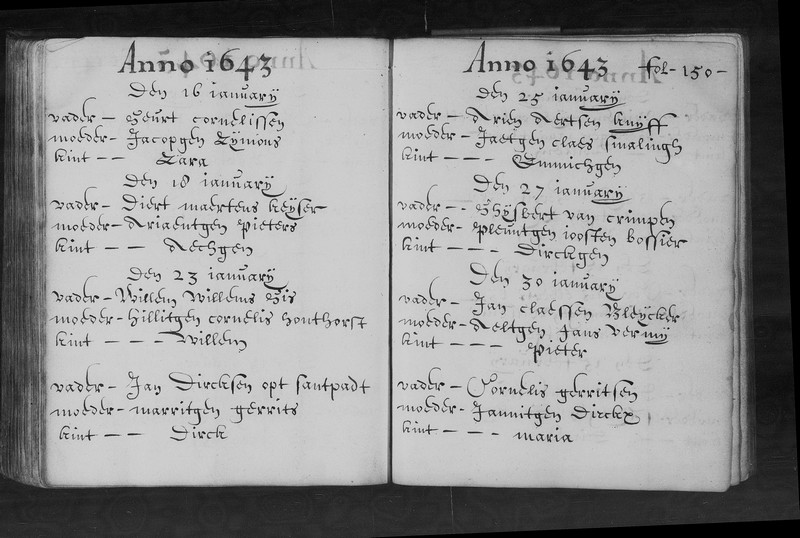 Anno 1643
Den 16 ianuary
vader - Geurt cornelissen
moeder - Jacopgen Rymons
kint - - Sara
Den 18 ianuary
vader - Diert maertens keyser
moeder - Ariaentgen Pieters
kint - - Aechgen
Den 23 ianuary
vader - Willem Willems Gis
moeder - hillitgen cornelis honthorst
kint - - - Willem
vader - Jan Dircksen opt santpadt
moeder - marritgen gerrits
kint - - Dirck
Anno 1643 fol - 150 -
Den 25 ianuary
vader - Arien Aertsen knyff
moeder - Jaetgen claes smalingh
kint - - - Emmichgen
Den 27 ianuary
vader - - Ghysbert van crimpen
moeder - Pleuntgen joosten bossier
kint - - - Dirckgen
Den 30 ianuary
vader - Jan claessen Bleycker
moeder - Aeltgen Jans vermy
kint - - - Pieter
vader - Cornelis gerritsen
moeder - Jannitgen Dirckx
kint - - - maria